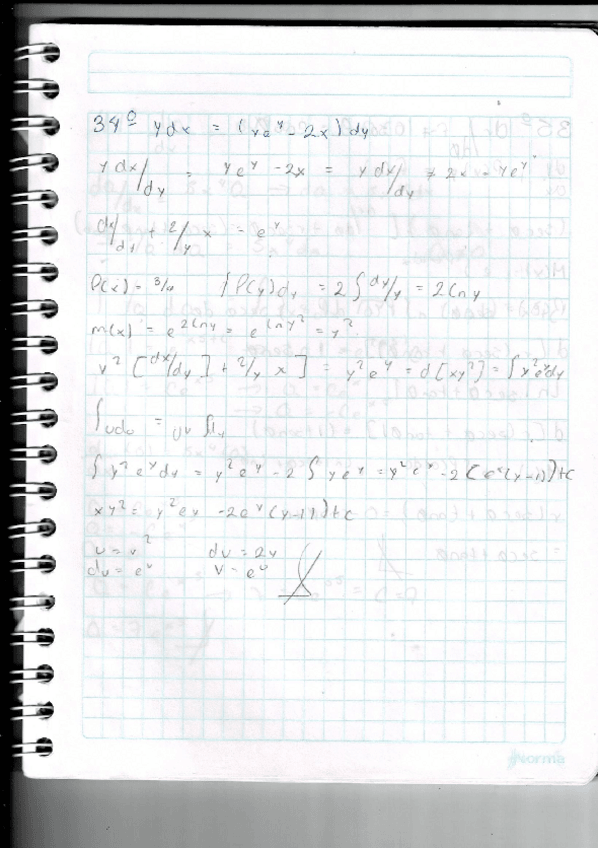 34º y dx = (ye^y - 2x) dy
y dx/dy = ye^y - 2x = y dx/dy + 2x = ye^y
dx/dy + 2/y x = e^y
∫P(y)dy = 2∫dy/y = 2 ln y
m(x) = e^2lny = e^lny² = y²
y² [dx/dy] + 2/y x] = y²e^y = d[xy²] = ∫y²e^y dy
∫udv = uv ∫
∫y²e^y dy = y²e^y - 2∫ye^y = y²e^y - 2(e^y(y-1))+C
xy² = y²ey - 2e^y(y-1)+C
u = y² du = 2y
dv = e^y v = e^y
Norma